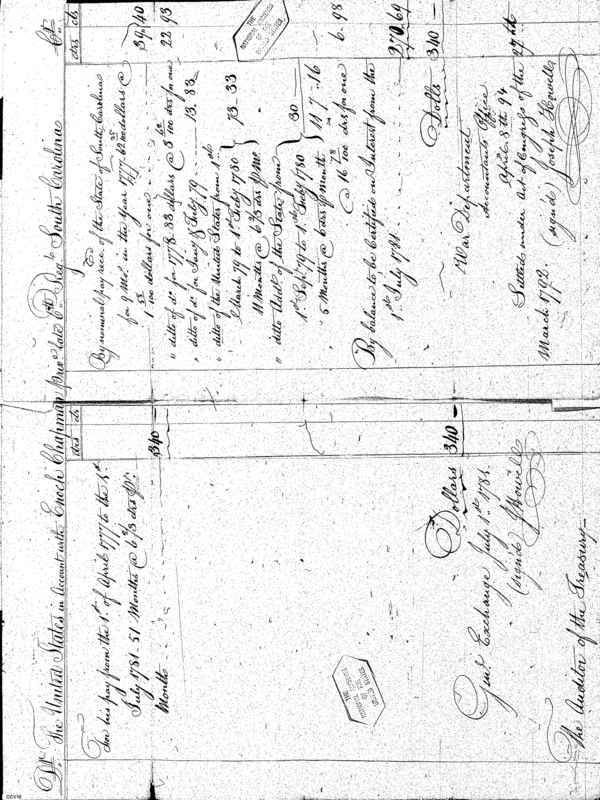 Dr. The United States in Account with Enoch Chapman Priv.e late 6th Reg.t South Carolina Cr.
drs cts
To his pay from the 1st of April 1777 to the 1st
July 1781 51 Months @ 6 2/3 drs pr.
Months 340 —
Dollars 340 —
Exchange July 1st 1781
(signed) J Howell
The Auditor of the Treasury
THE
NATIONAL ARCHIVES
OF THE
UNITED STATES
drs cts
Cr
By nominal pay rec.d of the State of South Carolina
for 9 Mo.s in the Year 1777 62 dollars @
1 55/100 dollars for one 39 40
" ditto of do for 1778 83 dollars @ 3 62/100 drs for one 22 93
" ditto of do for Jan.y & July 79 13.83
" ditto of the United States from 1st
March 79 to 1st July 1780
11 Months @ 6 2/3 drs pr Mo. 73 33
" ditto of the State from
1st Sept 79 to 1st July 1780
5 Months @ 6 drs pr Month 30
117.16
@ 16 78/100 drs for one 6. 98
By balance to be Certified on Interest from the
1st July 1781 270.69
Dolls 340 —
War Department
Accountants Office
April 8th 94
Settled under Act of Congress of the 27th
March 1792. (sign'd) Joseph Howell
THE
NATIONAL ARCHIVES
OF THE
UNITED STATES
CCV10